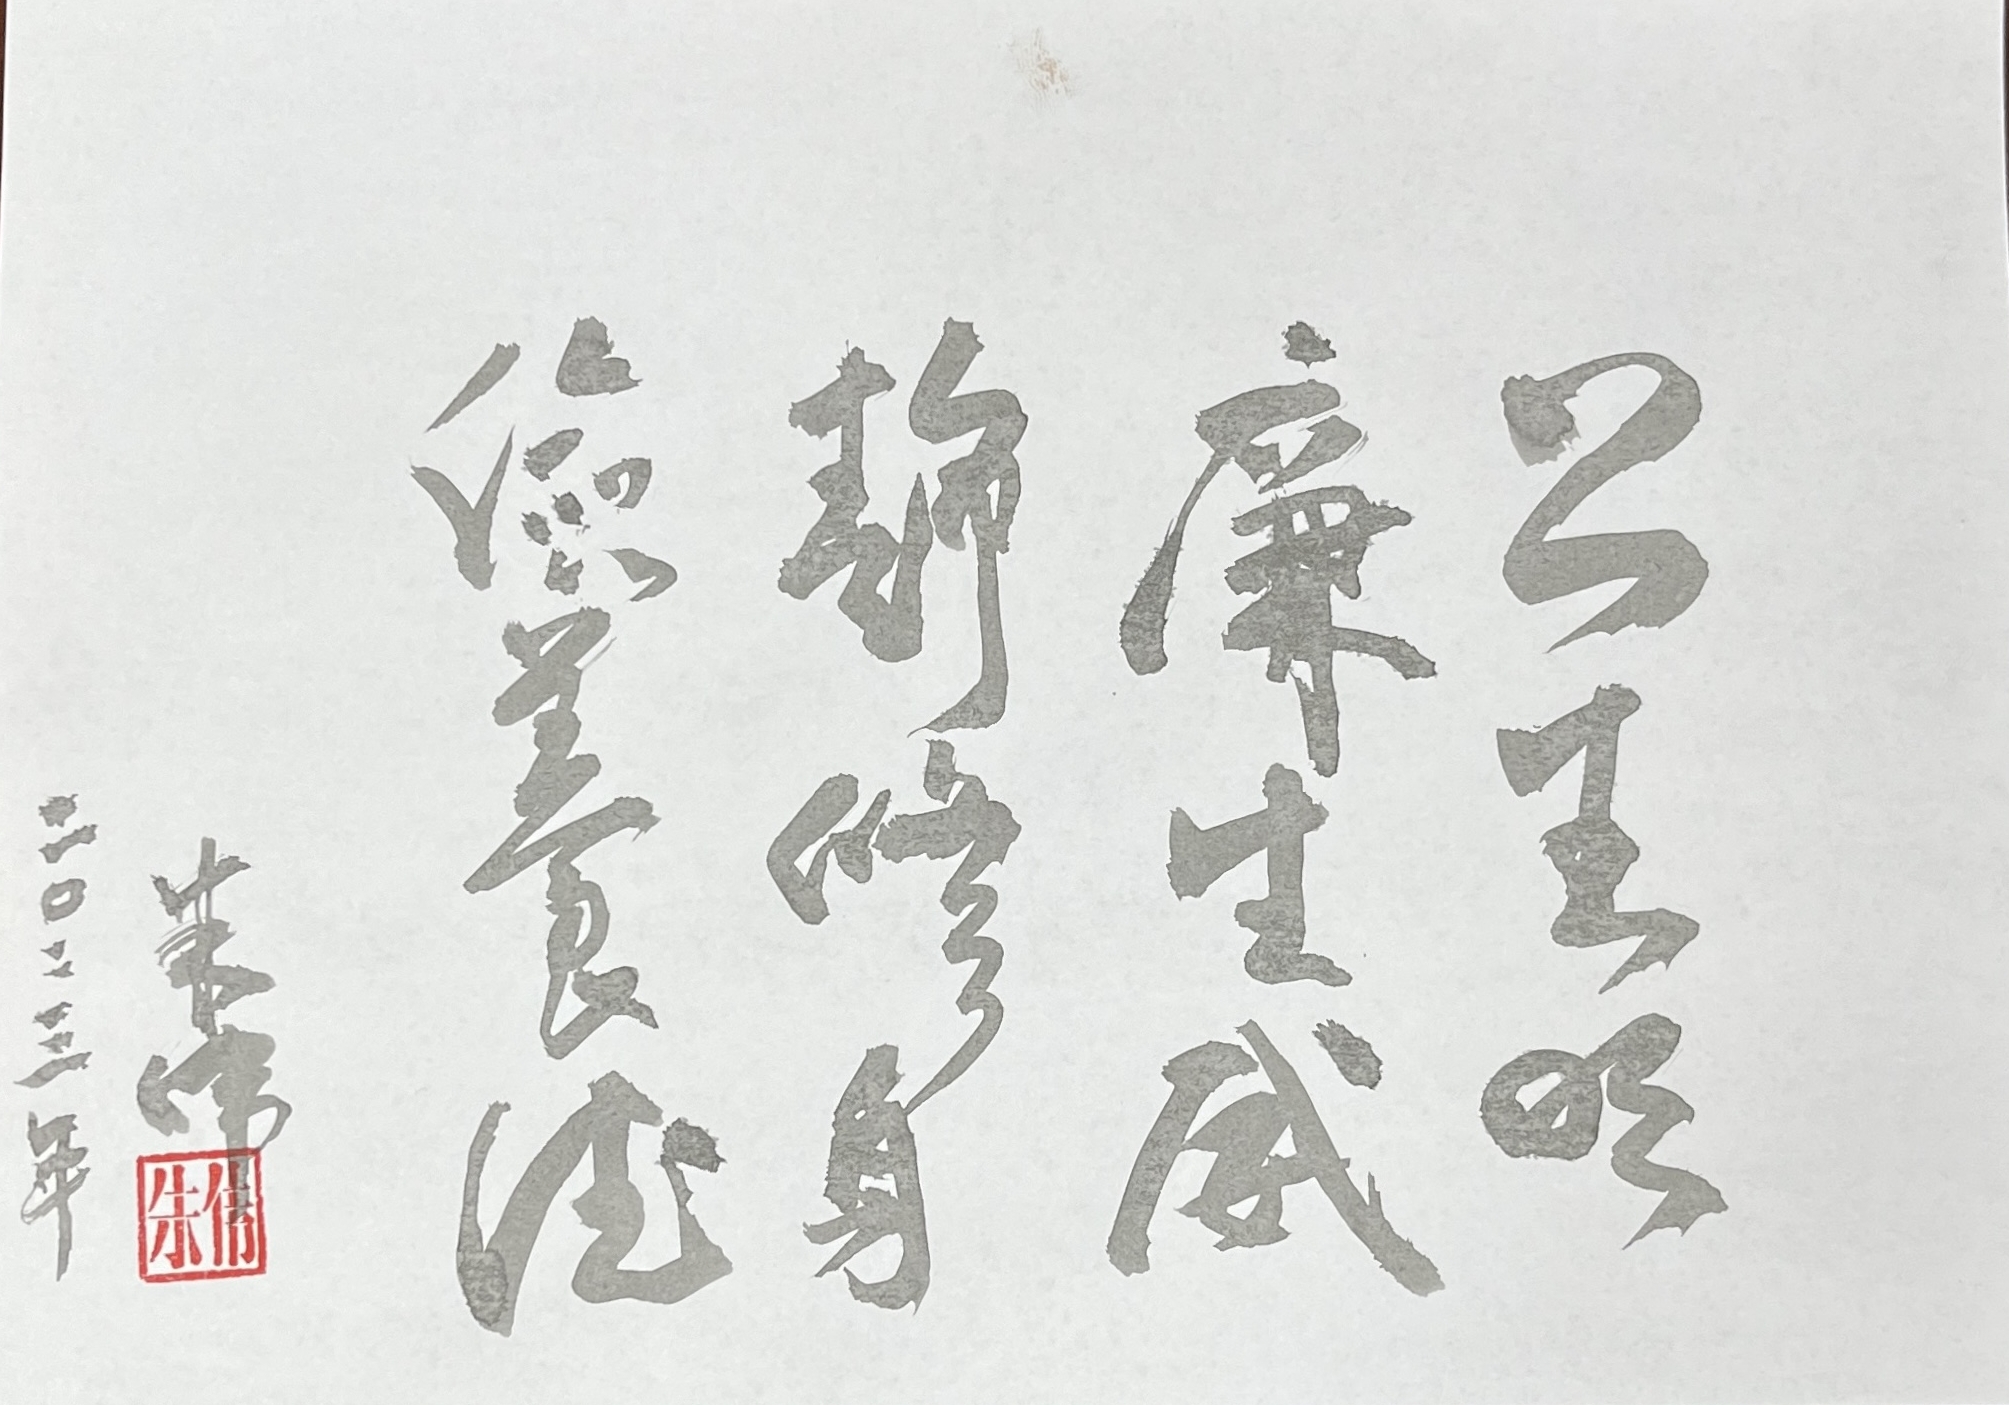 公生明
廉生威
静修身
儉養德
朱伟
二〇二三年
朱伟